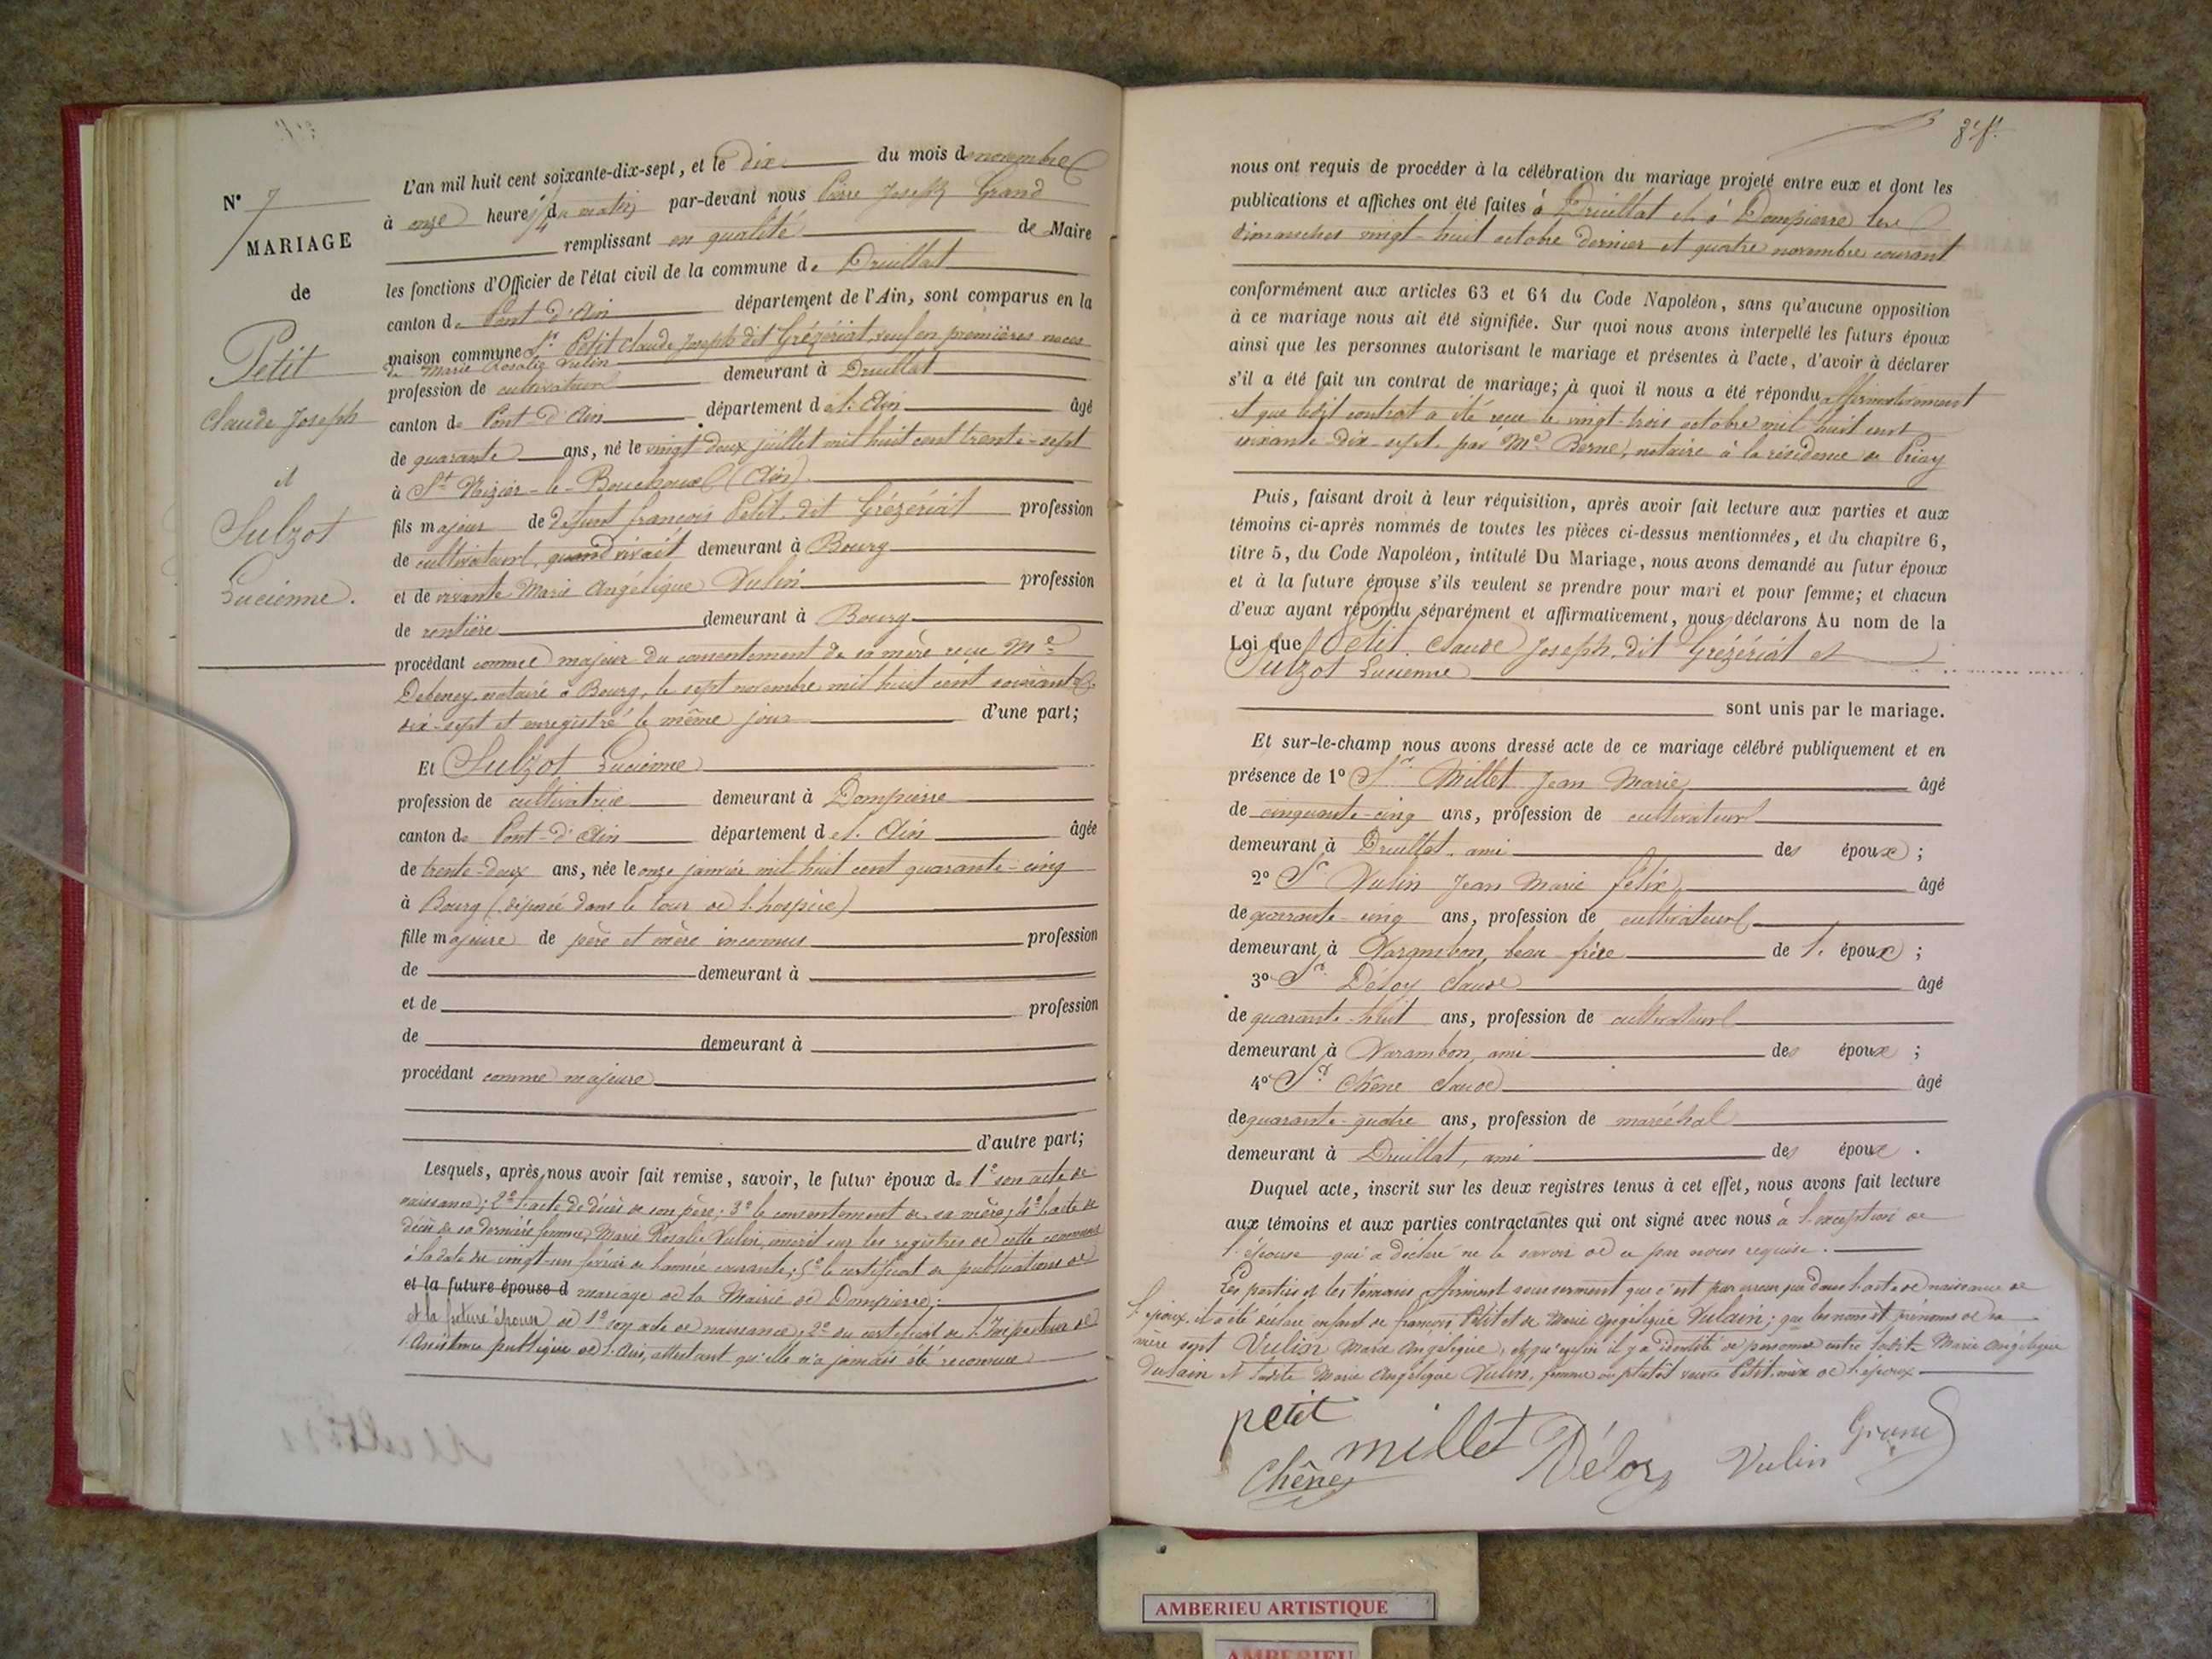 N° 7
MARIAGE
de
Petit
Claude Joseph
et
Sulzot
Lucienne.
L'an mil huit cent soixante-dix-sept, et le dix du mois de novembre
à onze heures 1/4 du matin par-devant nous Pierre Joseph Grand
remplissant en qualité de Maire
les fonctions d'Officier de l'état civil de la commune de Druillat
canton de Pont-d'Ain département de l'Ain, sont comparus en la
maison commune Sr Petit Claude Joseph dit Grézériat, veuf en premières noces
de Marie Rosalie Vulin
profession de cultivateur demeurant à Druillat
canton de Pont-d'Ain département de l'Ain âgé
de quarante ans, né le vingt-deux juillet mil huit cent trente-sept
à St Nizier-le-Bouchoux (Ain)
fils majeur de défunt françois Petit, dit Grézériat profession
de cultivateur, quand vivait demeurant à Bourg
et de vivante Marie Angélique Vulin profession
de rentière demeurant à Bourg
procédant comme majeur du consentement de sa mère reçu Me
Debeney, notaire à Bourg, le sept novembre mil huit cent soixante
dix-sept et enregistré le même jour d'une part;
Et Sulzot Lucienne
profession de cultivatrice demeurant à Dompierre
canton de Pont-d'Ain département de l'Ain âgée
de trente-deux ans, née le onze janvier mil huit cent quarante-cinq
à Bourg (déposée dans le tour de l'hospice)
fille majeure de père et mère inconnus profession
de demeurant à
et de profession
de demeurant à
procédant comme majeure
d'autre part;
Lesquels, après nous avoir fait remise, savoir, le futur époux de 1° son acte de
naissance; 2° l'acte de décès de son père; 3° le consentement de sa mère; 4° l'acte de
décès de sa dernière femme, Marie Rosalie Vulin, inscrit sur les registres de cette commune
à la date du vingt-un février de l'année courante; 5° le certificat de publications de
et la future épouse d mariage de la Mairie de Dompierre;
et la future épouse de 1° son acte de naissance; 2° du certificat de l'Inspecteur de
l'Assistance publique de l'Ain, attestant qu'elle n'a jamais été reconnue
nous ont requis de procéder à la célébration du mariage projeté entre eux et dont les
publications et affiches ont été faites à Druillat et à Dompierre les
dimanches vingt-huit octobre dernier et quatre novembre courant
conformément aux articles 63 et 64 du Code Napoléon, sans qu'aucune opposition
à ce mariage nous ait été signifiée. Sur quoi nous avons interpellé les futurs époux
ainsi que les personnes autorisant le mariage et présentes à l'acte, d'avoir à déclarer
s'il a été fait un contrat de mariage; à quoi il nous a été répondu affirmativement
et que ledit contrat a été reçu le vingt-trois octobre mil huit cent
soixante-dix-sept par Me Berne, notaire à la résidence de Priay
Puis, faisant droit à leur réquisition, après avoir fait lecture aux parties et aux
témoins ci-après nommés de toutes les pièces ci-dessus mentionnées, et du chapitre 6,
titre 5, du Code Napoléon, intitulé Du Mariage, nous avons demandé au futur époux
et à la future épouse s'ils veulent se prendre pour mari et pour femme; et chacun
d'eux ayant répondu séparément et affirmativement, nous déclarons Au nom de la
Loi que Petit Claude Joseph, dit Grézériat et
Sulzot Lucienne
sont unis par le mariage.
Et sur-le-champ nous avons dressé acte de ce mariage célébré publiquement et en
présence de 1° Sr Millet Jean Marie âgé
de cinquante-cinq ans, profession de cultivateur
demeurant à Druillat, ami des époux;
2° Sr Vulin Jean Marie félix, âgé
de quarante-cinq ans, profession de cultivateur
demeurant à Varambon, beau-frère de l'époux;
3° Sr Déloy Claude âgé
de quarante-huit ans, profession de cultivateur
demeurant à Varambon, ami des époux;
4° Sr Chêne Claude âgé
de quarante-quatre ans, profession de maréchal
demeurant à Druillat, ami des époux.
Duquel acte, inscrit sur les deux registres tenus à cet effet, nous avons fait lecture
aux témoins et aux parties contractantes qui ont signé avec nous à l'exception de
l'épouse qui a déclaré ne le savoir de ce par nous requise.
Les parties et les témoins affirment sous serment que c'est par erreur que dans l'acte de naissance de
l'époux il a été déclaré enfant de françois Petit et de Marie Angélique Vulain; que les noms et prénoms de sa
mère sont Vulin Marie Angélique, et qu'enfin il y a identité de personne entre ladite Marie Angélique
Vulain et ladite Marie Angélique Vulin, femme ou plutôt veuve Petit, mère de l'époux
petit
millet
Déloy
Vulin
Grand
Chêne
AMBERIEU ARTISTIQUE
AMBERIEU